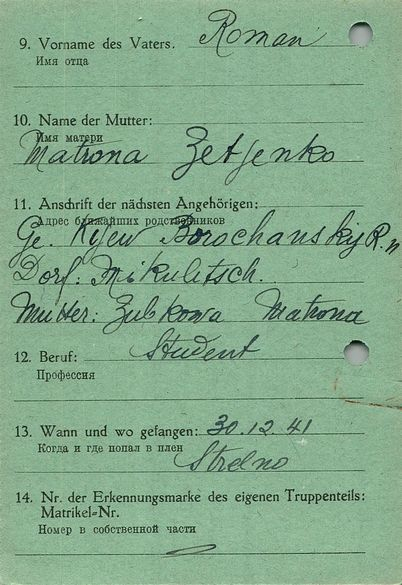 9. Vorname des Vaters. Roman
Имя отца
10. Name der Mutter:
Имя матери
Matrona Zetjenko
11. Anschrift der nächsten Angehörigen:
Адрес ближайших родственников
Ge. Kijew Borochansky R.n
Dorf: Mikulitsch.
Mutter: Zubkowa Matrona
12. Beruf: Student
Профессия
13. Wann und wo gefangen: 30.12.41
Когда и где попал в плен
Strelno
14. Nr. der Erkennungsmarke des eigenen Truppenteils:
Matrikel-Nr.
Номер в собственной части